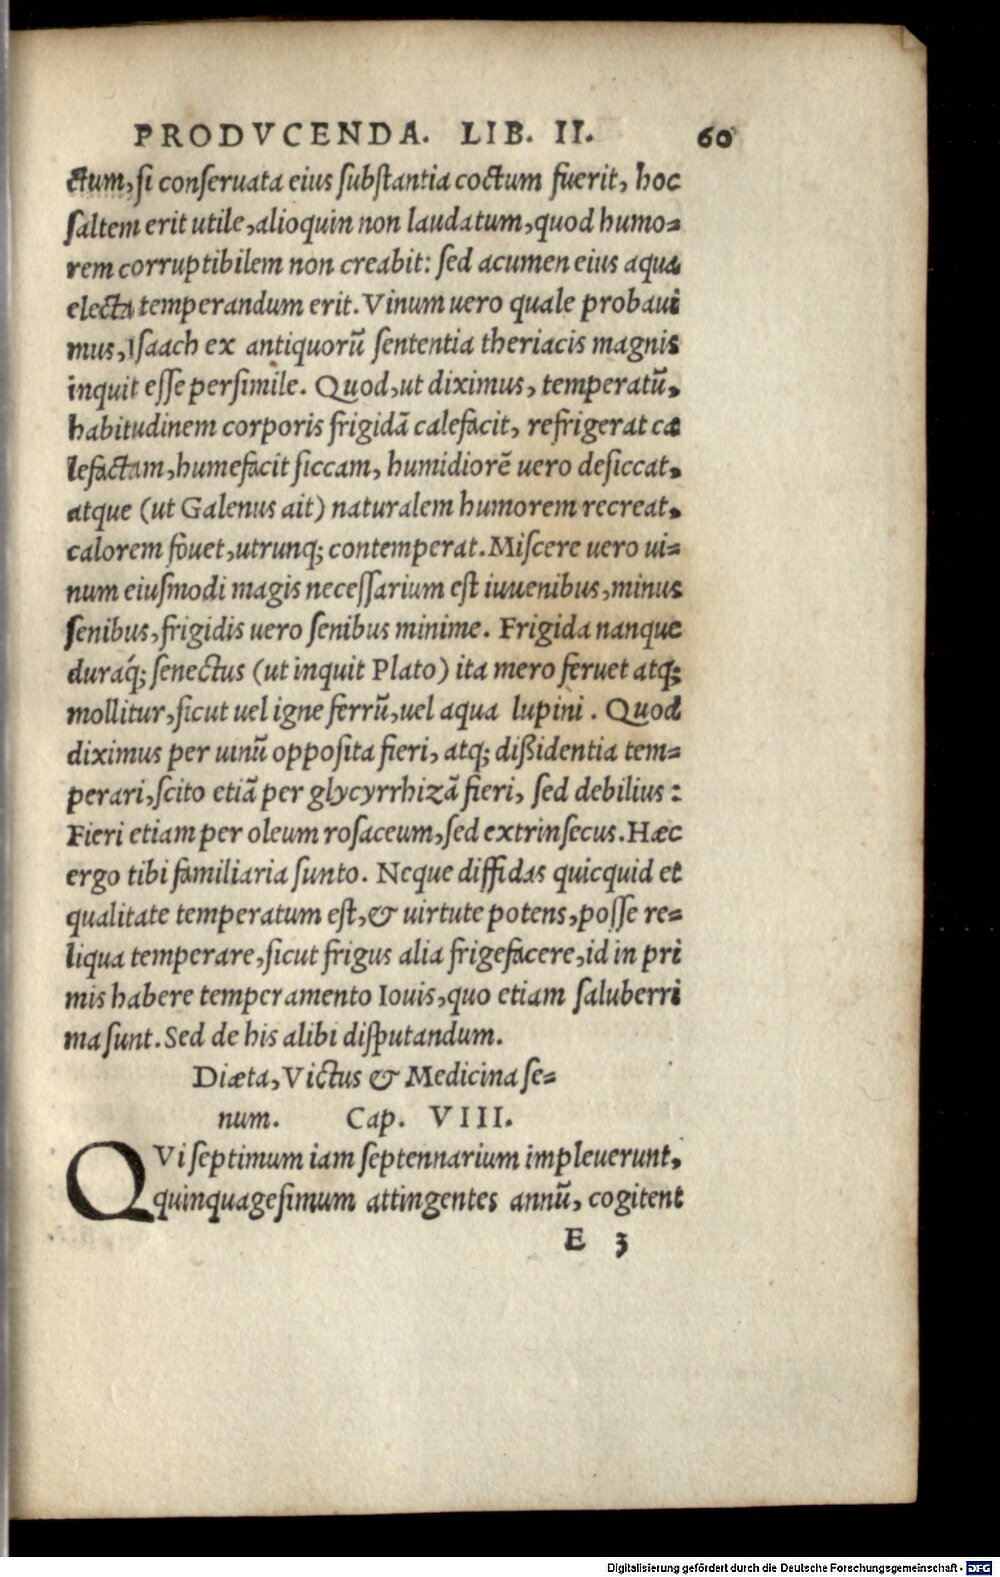 PRODVCENDA. LIB. II. 60
ctum, ſi conſeruata eius ſubſtantia coctum fuerit, hoc
ſaltem erit utile, alioquin non laudatum, quod humo-
rem corruptibilem non creabit: ſed acumen eius aqua
electa temperandum erit. Vinum uero quale probaui
mus, Iſaach ex antiquorũ ſententia theriacis magnis
inquit eſſe perſimile. Quod, ut diximus, temperatũ,
habitudinem corporis frigidã calefacit, refrigerat ca
lefactam, humefacit ſiccam, humidiorẽ uero deſiccat,
atque (ut Galenus ait) naturalem humorem recreat,
calorem fouet, utrunq; contemperat. Miſcere uero ui-
num eiuſmodi magis neceſſarium eſt iuuenibus, minus
ſenibus, frigidis uero ſenibus minime. Frigida nanque
duraq́; ſenectus (ut inquit Plato) ita mero feruet atq;
mollitur, ſicut uel igne ferrũ, uel aqua lupini. Quod
diximus per uinũ oppoſita fieri, atq; dißidentia tem-
perari, ſcito etiã per glycyrrhizã fieri, ſed debilius:
Fieri etiam per oleum roſaceum, ſed extrinſecus. Hæc
ergo tibi familiaria ſunto. Neque diffidas quicquid et
qualitate temperatum eſt, & uirtute potens, poſſe re-
liqua temperare, ſicut frigus alia frigefacere, id in pri
mis habere temperamento Iouis, quo etiam ſaluberri
ma ſunt. Sed de his alibi diſputandum.
Diæta, Victus & Medicina ſe-
num. Cap. VIII.
QVi ſeptimum iam ſeptennarium impleuerunt,
quinquageſimum attingentes annũ, cogitent
E 3
Digitalisierung gefördert durch die Deutsche Forschungsgemeinschaft - DFG